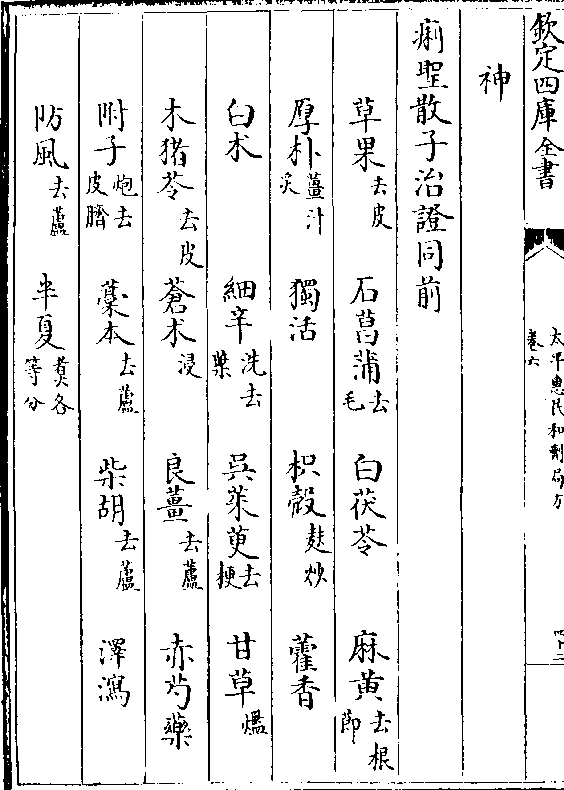 欽定四庫全書
太平惠民和劑局方
卷六
四十二
神
痢聖散子治證同前
草果去皮 石菖蒲去毛 白茯苓 麻黃去根節
厚朴薑汁炙 獨活 枳殼麩炒 藿香
白朮 細辛洗去葉 吳茱萸去梗 甘草爁
木猪苓去皮 蒼朮浸 良薑去蘆 赤芍藥
附子炮去皮臍 藁本去蘆 柴胡去蘆 澤瀉
防風去蘆 半夏煮各等分